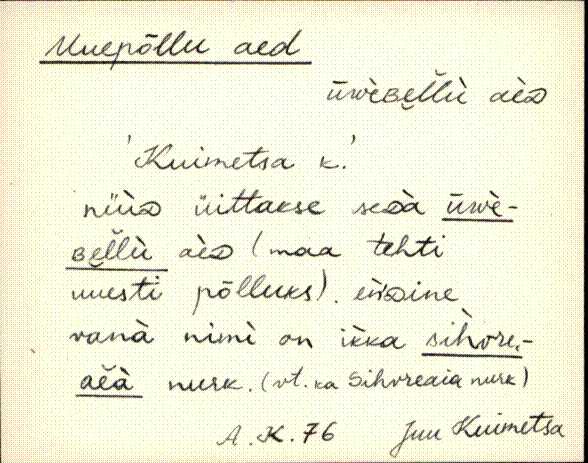 Uuepõllu aed
ūwèʙel̆l̆ù aèᴅ
'Kuimetsa k.'
nüüᴅ üittakse seᴅà ūwè-
ʙel̆l̆ù aèᴅ (maa tehti
uuesti põlluks). eńᴅine
vanà nimì on ikka sihvre,-
aĕà nurk. (vt. ka Sihvreaia nurk)
A. K. 76 Juu Kuimetsa